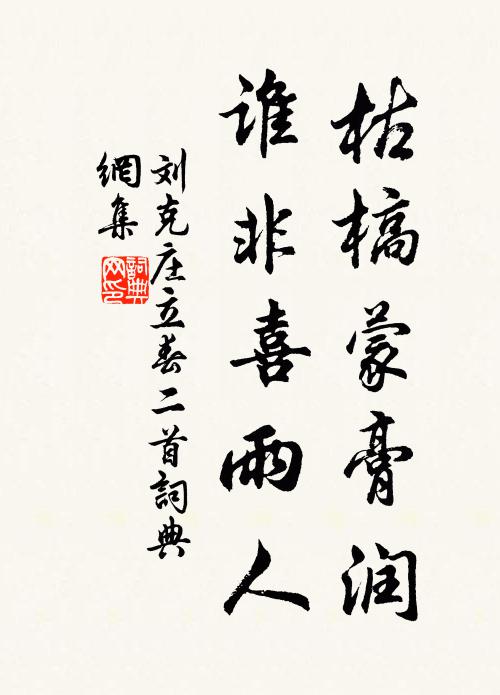 枯槁蒙膏润
谁非喜雨人
刘克庄立春二首詞典
網集
詞典网印